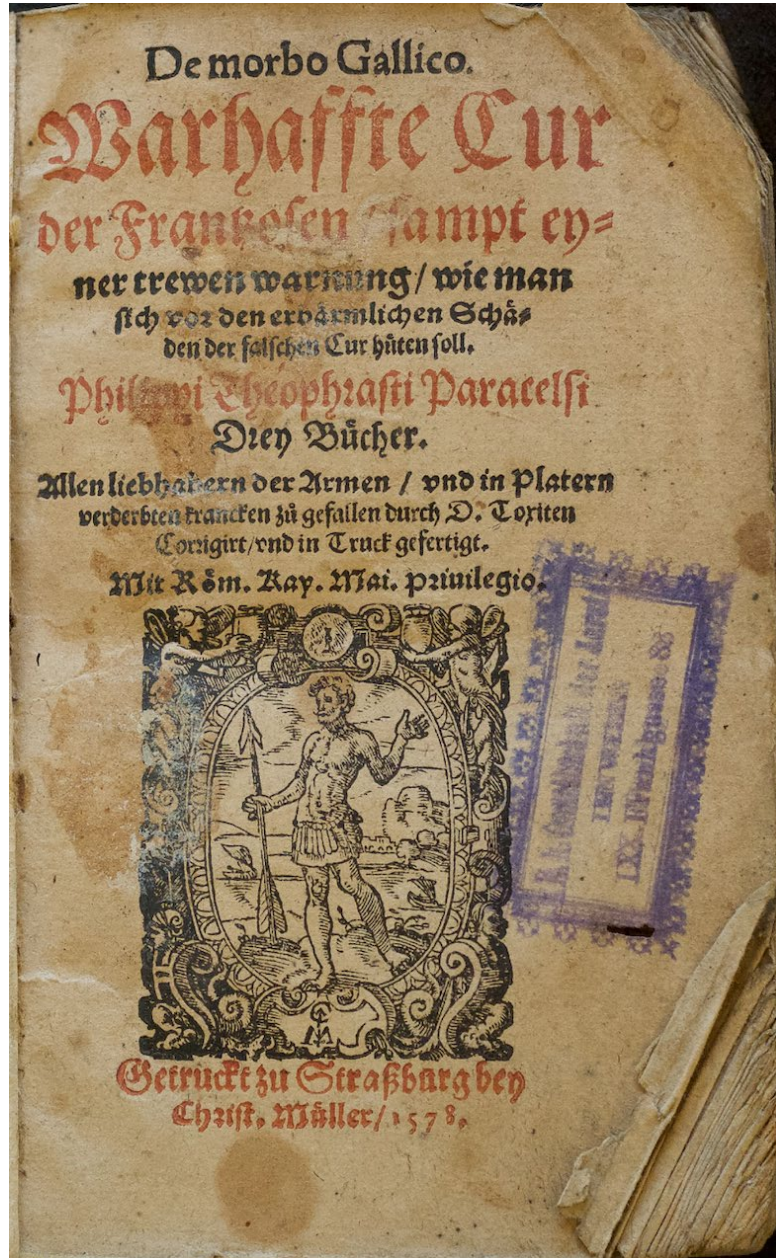 De morbo Gallico.
Warhaffte Cur
der Frantzosen / sampt ey=
ner trewen warnung / wie man
sich vor den erbärmlichen Schä=
den der falschen Cur hüten soll.
Philippi Theophrasti Paracelsi
Drey Bücher.
Allen liebhabern der Armen / vnd in Platern
verderbten krancken zů gefallen durch D. Toxiten
Corrigirt / vnd in Truck gefertigt.
Mit Röm. Kay. Mai. priuilegio.
Getruckt zu Straßburg bey
Christ. Müller / 1578.
K. k. der
IN WIEN
IXX.